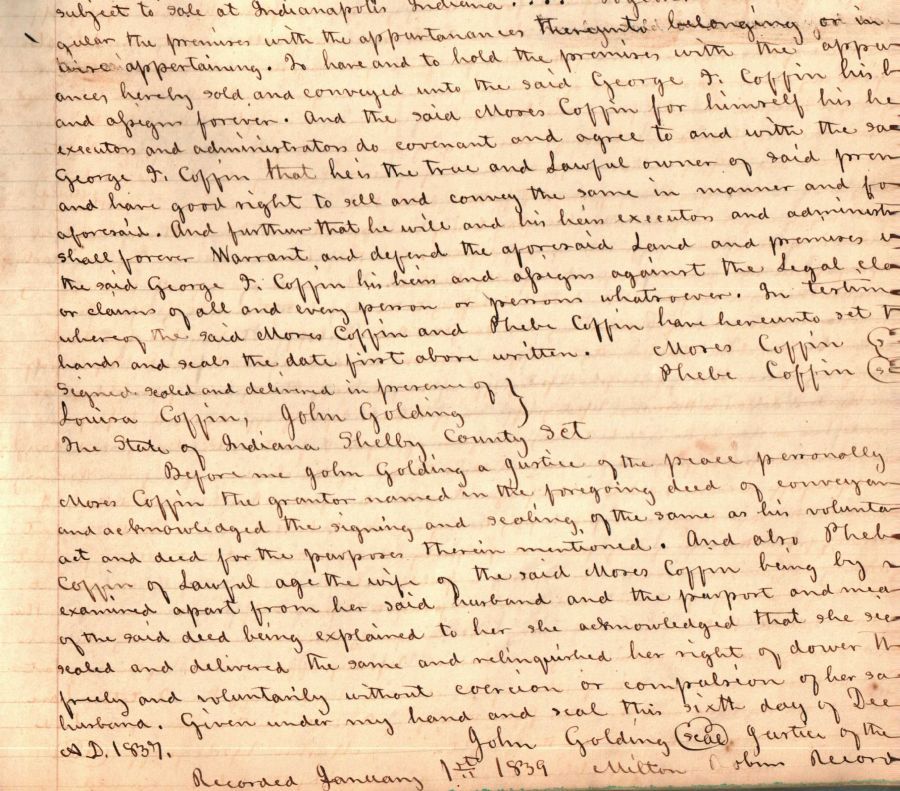 subject to sale at Indianapolis Indiana . . . .
gular the premises with the appurtanances thereunto belonging or in
wise appertaining. To have and to hold the premises with the appur
ances hereby sold and conveyed unto the said George F. Coffin his h
and assigns forever. And the said Moses Coffin for himself his he
executors and administrators do covenant and agree to and with the sa
George F. Coffin that he is the true and Lawful owner of said prem
and have good right to sell and convey the same in manner and fo
aforesaid. And furthur that he will and his heirs executors and administr
shall forever Warrant and defend the aforesaid Land and premises u
the said George F. Coffin his heirs and assigns against the Legal cla
or claims of all and every person or persons whatsoever. In testim
whereof the said Moses Coffin and Phebe Coffin have hereunto set t
hands and seals the date first above written. Moses Coffin
Signed sealed and delivered in presence of } Phebe Coffin
Louisa Coffin, John Golding
The State of Indiana Shelby County Sct
Before me John Golding a Justice of the peace personally
Moses Coffin the grantor named in the foregoing deed of conveyan
and acknowledged the signing and sealing of the same as his volunta
act and deed for the purposes therein mentioned. And also Pheb
Coffin of Lawful age the wife of the said Moses Coffin being by
examined apart from her said husband and the purport and mea
of the said deed being explained to her she acknowledged that she
sealed and delivered the same and relinquished her right of dower th
freely and voluntarily without coercion or compulsion of her sa
husband. Given under my hand and seal this sixth day of Dec
A.D. 1837. John Golding (seal) Justice of the
Recorded January 1st 1839 Milton Robins Record